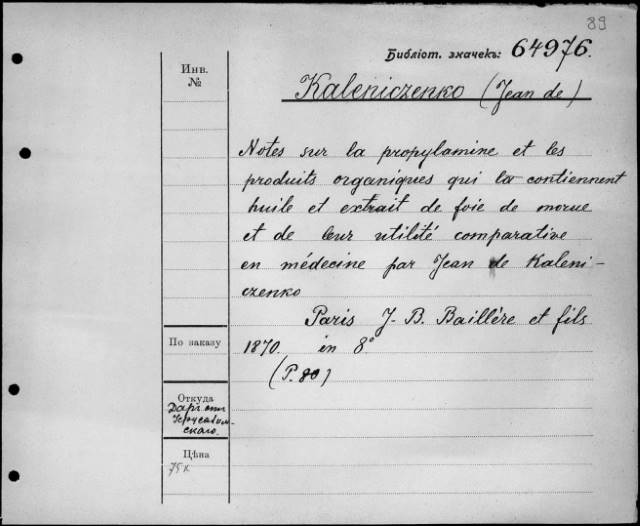 89
Библіот. значекъ: 64976.
Инв.
№
Kaleniczenko (Jean de)
Notes sur la propylamine et les
produits organiques qui la contiennent
huile et extrait de foie de morue
et de leur utilité comparative
en médecine par Jean de Kaleni-
czenko
Paris J. B. Baillère et fils
1870. in 8°
(P. 80)
По заказу
Откуда
Даръ отъ
скаго.
Цѣна
75к